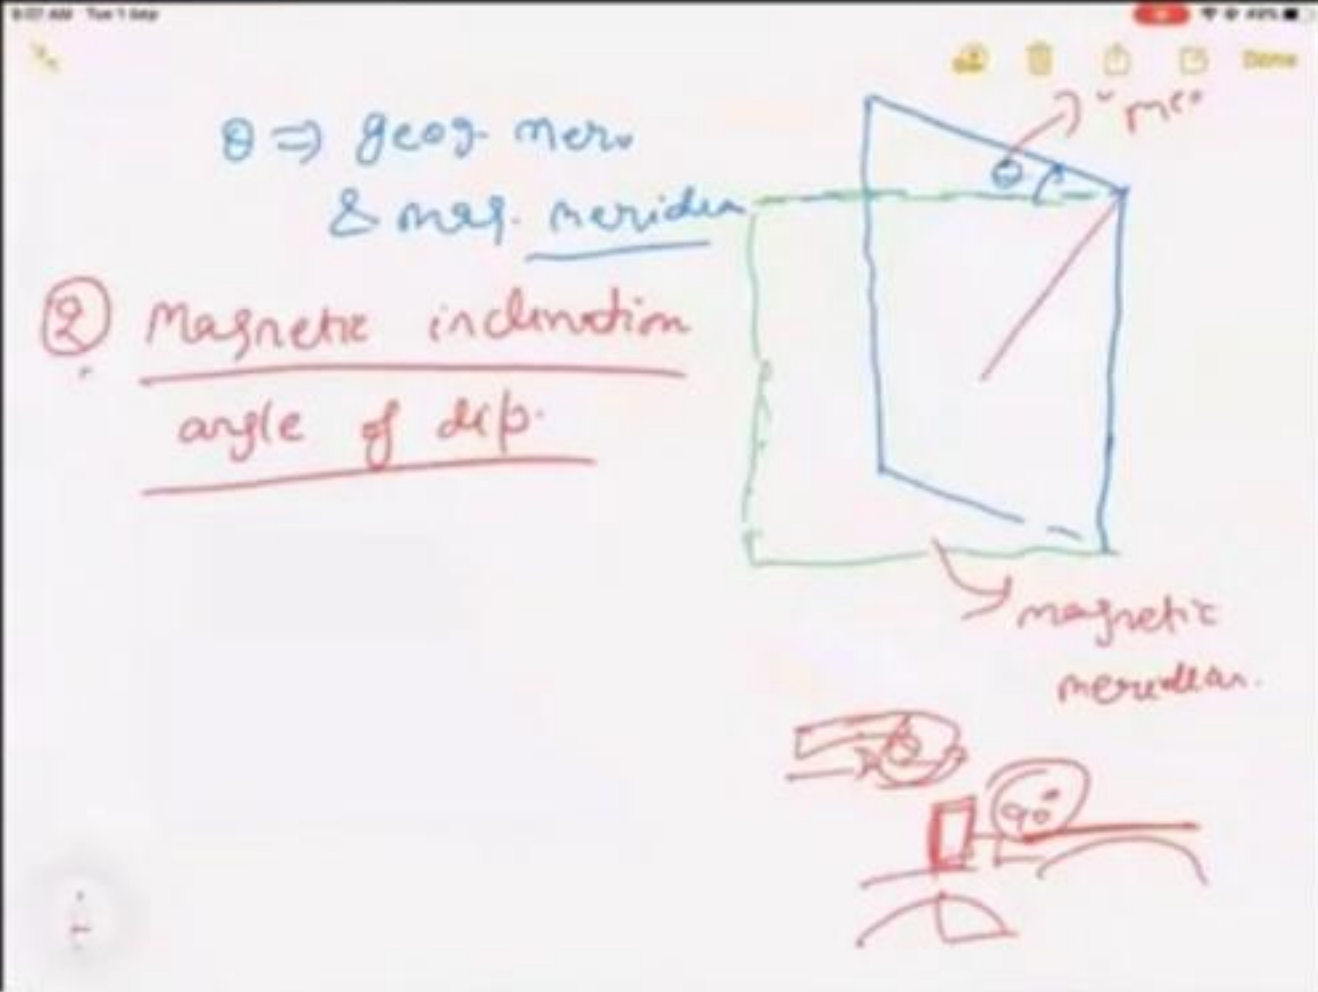 9:07 AM Tue 1 Sep
Done
θ ⇒ geog. mer.
& mag. meridian
② Magnetic inclination
angle of dip.
θ
magnetic
meridian.
90°